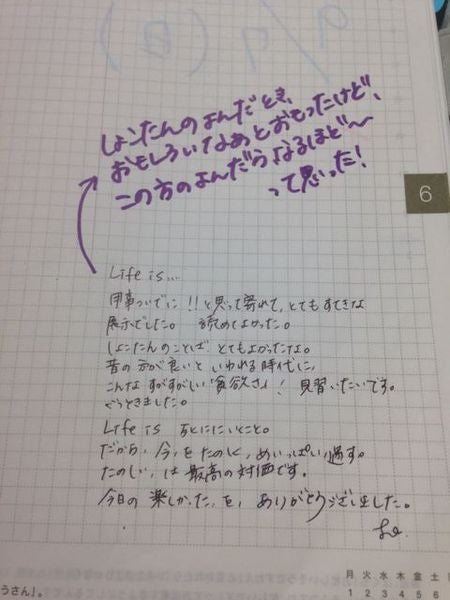 9/7(日)
しょこたんのよんだとき、
おもしろいなあとおもったけど、
この方のよんだらなるほど〜
って思った!
6
Life is....
用事ついでに!!と思って寄れて、とてもすてきな
展示でした。 読めてよかった。
しょこたんのことば とてもよかったな。
昔の方が良いと いわれる時代に、
こんな すがすがしい 貪欲さ! 見習いたいです。
ぐっときました。
Life is
だから、今、を たのしく、めいっぱい 過す。
たのしい、は 最高の対価です。
今日の 楽しかった、を、ありがとうございました。
月 火 水 木 金 土
1 2 3 4 5 6
うさん」。